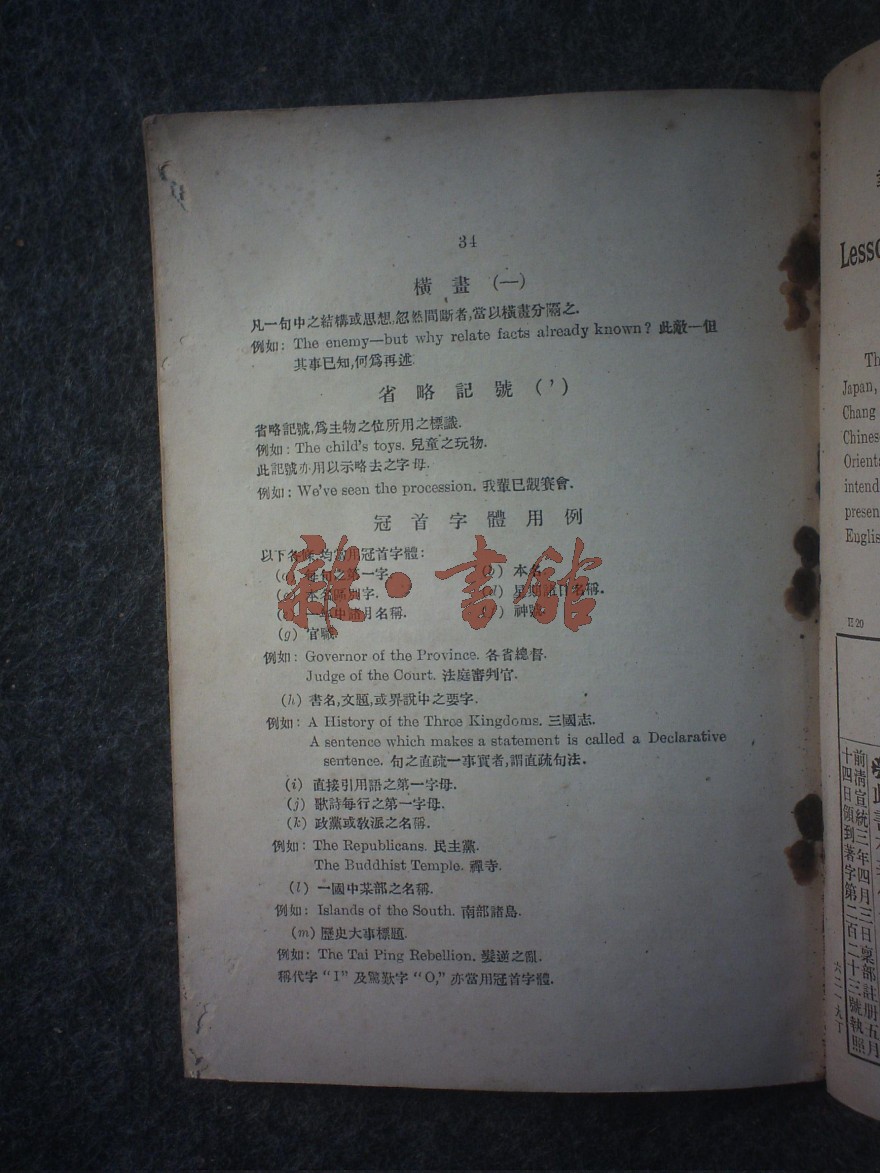 34
橫 畫 (—)
凡一句中之結構或思想,忽然間斷者,當以橫畫分隔之.
例如: The enemy—but why relate facts already known? 此敵—但
其事已知,何爲再述.
省 略 記 號 (’)
省略記號,爲生物之位所用之標識.
例如: The child's toys. 兒童之玩物.
此記號亦用以示略去之字母.
例如: We've seen the procession. 我輩已觀賽會.
冠 首 字 體 用 例
以下各條,均當用冠首字體:
(a) 每句之第一字. (b) 本名.
(c) 本名區別字. (d) 星期諸日名稱.
一年中諸月名稱. (f) 神號.
(g) 官職.
雜·書館
例如: Governor of the Province. 各省總督.
Judge of the Court. 法庭審判官.
(h) 書名,文題,或界說中之要字.
例如: A History of the Three Kingdoms. 三國志.
A sentence which makes a statement is called a Declarative
sentence. 句之直疏一事實者,謂直疏句法.
(i) 直接引用語之第一字母.
(j) 歌詩每行之第一字母.
(k) 政黨或敎派之名稱.
例如: The Republicans. 民主黨.
The Buddhist Temple. 禪寺.
(l) 一國中某部之名稱.
例如: Islands of the South. 南部諸島.
(m) 歷史大事標題.
例如: The Tai Ping Rebellion. 髮逆之亂.
稱代字 “I” 及驚歎字 “O,” 亦當用冠首字體.
Lesso
Th
Japan,
Chang
Chines
Orienta
intend
presen
Englis
H 20
前淸宣統三年四月三日稟部註册五月
十四日領到著字第二百二十三號執照